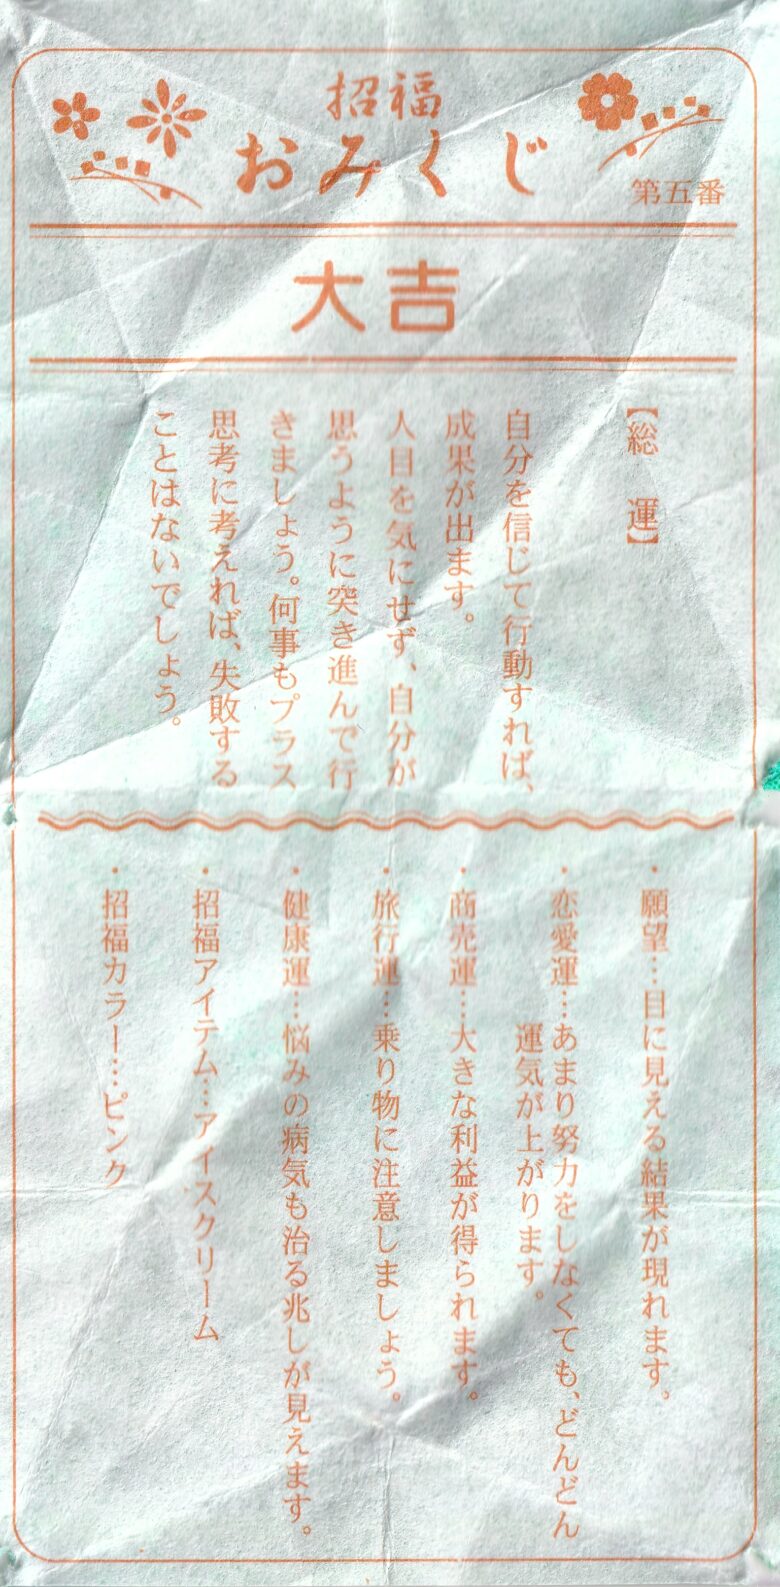 招福
おみくじ
第五番
大吉
【総　運】
自分を信じて行動すれば、
成果が出ます。
人目を気にせず、自分が
思うように突き進んで行
きましょう。何事もプラス
思考に考えれば、失敗する
ことはないでしょう。
・願望…目に見える結果が現れます。
・恋愛運…あまり努力をしなくても、どんどん
運気が上がります。
・商売運…大きな利益が得られます。
・旅行運…乗り物に注意しましょう。
・健康運…悩みの病気も治る兆しが見えます。
・招福アイテム…アイスクリーム
・招福カラー…ピンク